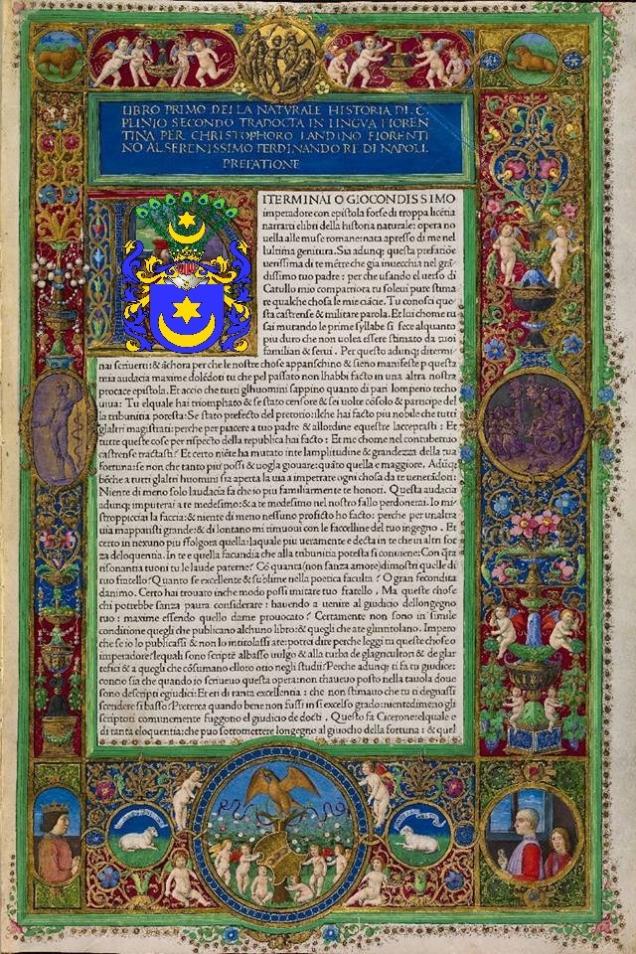 LIBRO PRIMO DELLA NATVRALE HISTORIA DI. C.
PLINIO SECONDO TRADOCTA IN LINGVA FIOREN
TINA PER CHRISTOPHORO LANDINO FIORENTI
NO AL SERENISSIMO FERDINANDO RE DI NAPOLI.
PREFATIONE
ITERMINAI O GIOCONDISSIMO
imperadore con epistola forse di troppa licẽtia
narrarti elibri della historia naturale: opera no
uella alle muse romane: nata apresso di me nel
lultima genitura. Sia adunq; questa prefatiõe
uerissima di te mẽtre che gia inuecchia nel grã
dissimo tuo padre: per che usando el uerso di
Catullo mio compatriota tu soleui pure stima
re qualche chosa le mie ciãcie. Tu conosci que
sta castrense & militare parola. Et lui chome tu
sai mutando le prime syllabe si fece alquanto
piu duro che non uolea essere stimato da tuoi
familiari & serui. Per questo adunq; ditermi
nai scriuerti: & ãchora per che le nostre chose apparischino & sieno manifeste per questa
mia audacia maxime dolẽdoti tu che pel passato non lhabbi facto in una altra nostra
procace epistola. Et accio che tutti glhuomini sappino quanto di pari lomperio techo
uiua: Tu elquale hai triomphato & se stato censore & sei uolte cõsolo & participe del
la tribunitia potesta: Se stato prefecto del pretorio: ilche hai facto piu nobile che tutti
glaltri magistrati: perche per piacere a tuo padre & allordine equestre laccceptasti: Et
tutte queste cose per rispecto della republica hai facto: Et me chome nel contubernio
castrense tractasti? Et certo niẽte ha mutato inte lamplitudine & grandezza della tua
fortuna: se non che tanto piu possi & uogla giouare: quãto quella e maggiore. Adũq;
bẽche a tutti glaltri huomini sia aperta la uia a impetrare ogni chosa da te uenerãdoti:
Niente di meno solo laudacia fa che io piu familiarmente te honori. Questa audacia
adunq; imputerai a te medesimo: & a te medesimo nel nostro fallo perdonerai. Io mi
stropicciai la faccia: & niente di meno nessuno proficto ho facto: perche per unaltra
uia mappristi grande: & di lontano mi rimuoui con le faccelline del tuo ingegno. Et
certo in nexuno piu sfolgora quella: laquale piu ueramente e decta in te che in altri for
za deloquentia. In te e quella facundia che alla tribunitia potesta si conuiene: Con q̃ta
risonantia tuoni tu le laude paterne? Cõ quanta (non sanza amore) dimostri quelle di
tuo fratello? Quanto se excellente & sublime nella poetica faculta? O gran fecondita
danimo. Certo hai trouato inche modo possi imitare tuo fratello. Ma queste chose
chi potrebbe sanza paura considerare: hauendo a uenire al giudicio dellongegno
tuo: maxime essendo quello dame prouocato? Certamente non sono in simile
conditione quegli che publicano alchuno libro: & quegli che ate glintitolano. Impero
che se io lo publicassi & non lo intitolassi ate: potrei dire perche leggi tu queste chose o
imperadore? lequali sono scripte albasso uulgo & alla turba de glagricultori & de glar
tefici & a quegli che cõsumano elloro otio negli studii? Perche adunq; ti fa tu giudice:
conciosia che quando io scriueuo questa opera: non thaueuo posto nella tauola doue
sono descripti egiudici: Et eri di tanta excellentia: che non stimauo che tu ti degnassi
scendere si basso? Preterea quando bene non fussi in si excelso grado: nientedimeno gli
scriptori comunemente fuggono el giudicio de docti. Questo fa Cicerone: elquale e
di tanta eloquentia: che puo sottomettere longegno al giuocho della fortuna: & quel